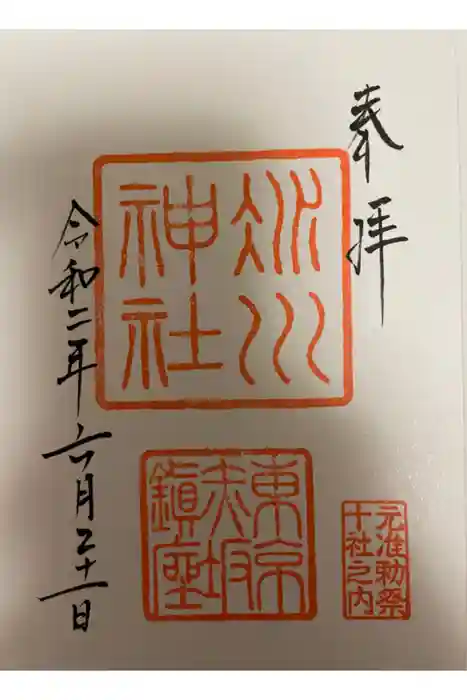 奉拝
氷川
神社
東京
赤坂
鎮座
元准勅祭
十社之内
令和二年六月二十一日